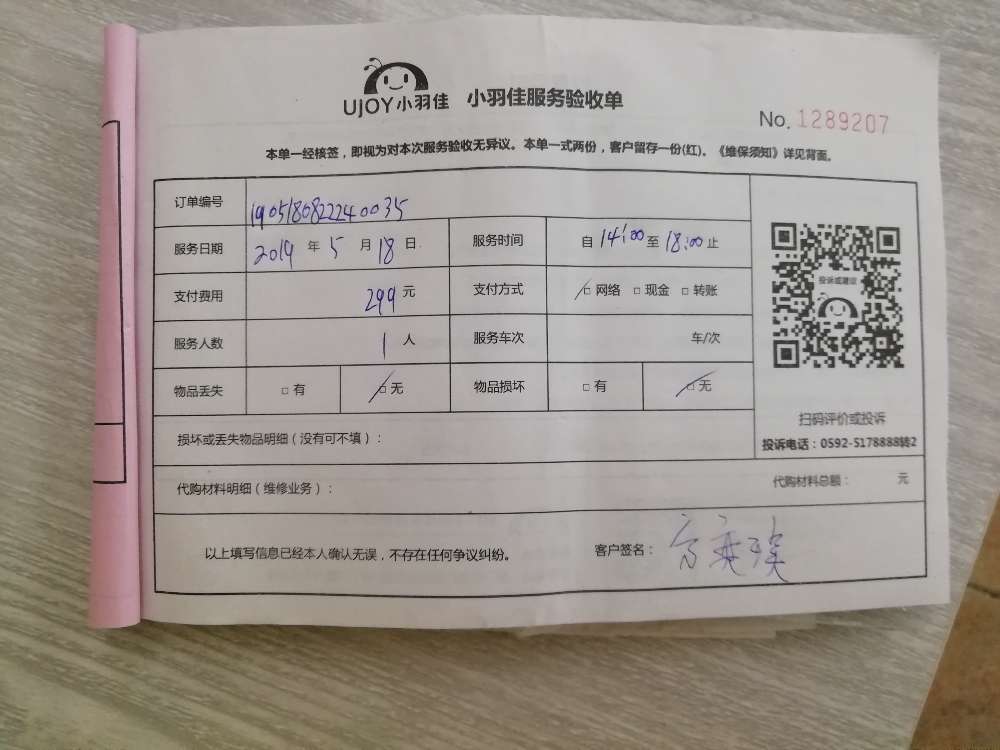 UJOY小羽佳 小羽佳服务验收单
No. 1289207
本单一经核签，即视为对本次服务验收无异议。本单一式两份，客户留存一份(红)。《维保须知》详见背面。
订单编号 1905180822240035
服务日期 2019 年 5 月 18 日 服务时间 自 14:00 至 18:00 止
投诉或建议
支付费用 299 元 支付方式 □ 网络 □ 现金 □ 转账
服务人数 1 人 服务车次 车/次
物品丢失 □ 有 □ 无 物品损坏 □ 有 □ 无
扫码评价或投诉
投诉电话：0592-5178888转2
损坏或丢失物品明细（没有可不填）：
代购材料明细（维修业务）： 代购材料总额： 元
以上填写信息已经本人确认无误，不存在任何争议纠纷。 客户签名：